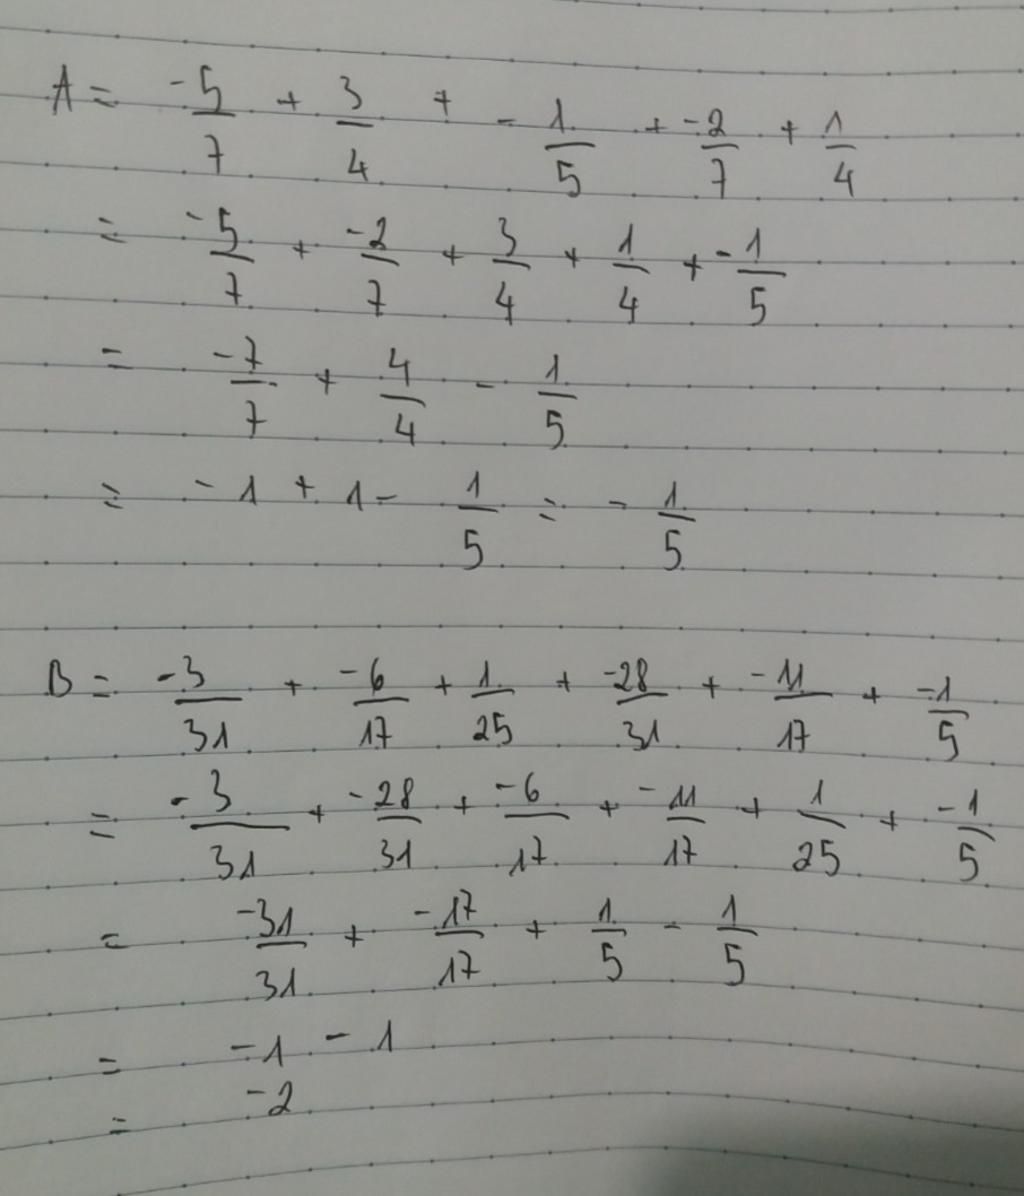 A = -5/7 + 3/4 + -1/5 + -2/7 + 1/4
= -5/7 + -2/7 + 3/4 + 1/4 + -1/5
= -7/7 + 4/4 - 1/5
= -1 + 1 - 1/5 = -1/5
B = -3/31 + -6/17 + 1/25 + -28/31 + -11/17 + -1/5
= -3/31 + -28/31 + -6/17 + -11/17 + 1/25 + -1/5
= -31/31 + -17/17 + 1/5 - 1/5
= -1 - 1
= -2